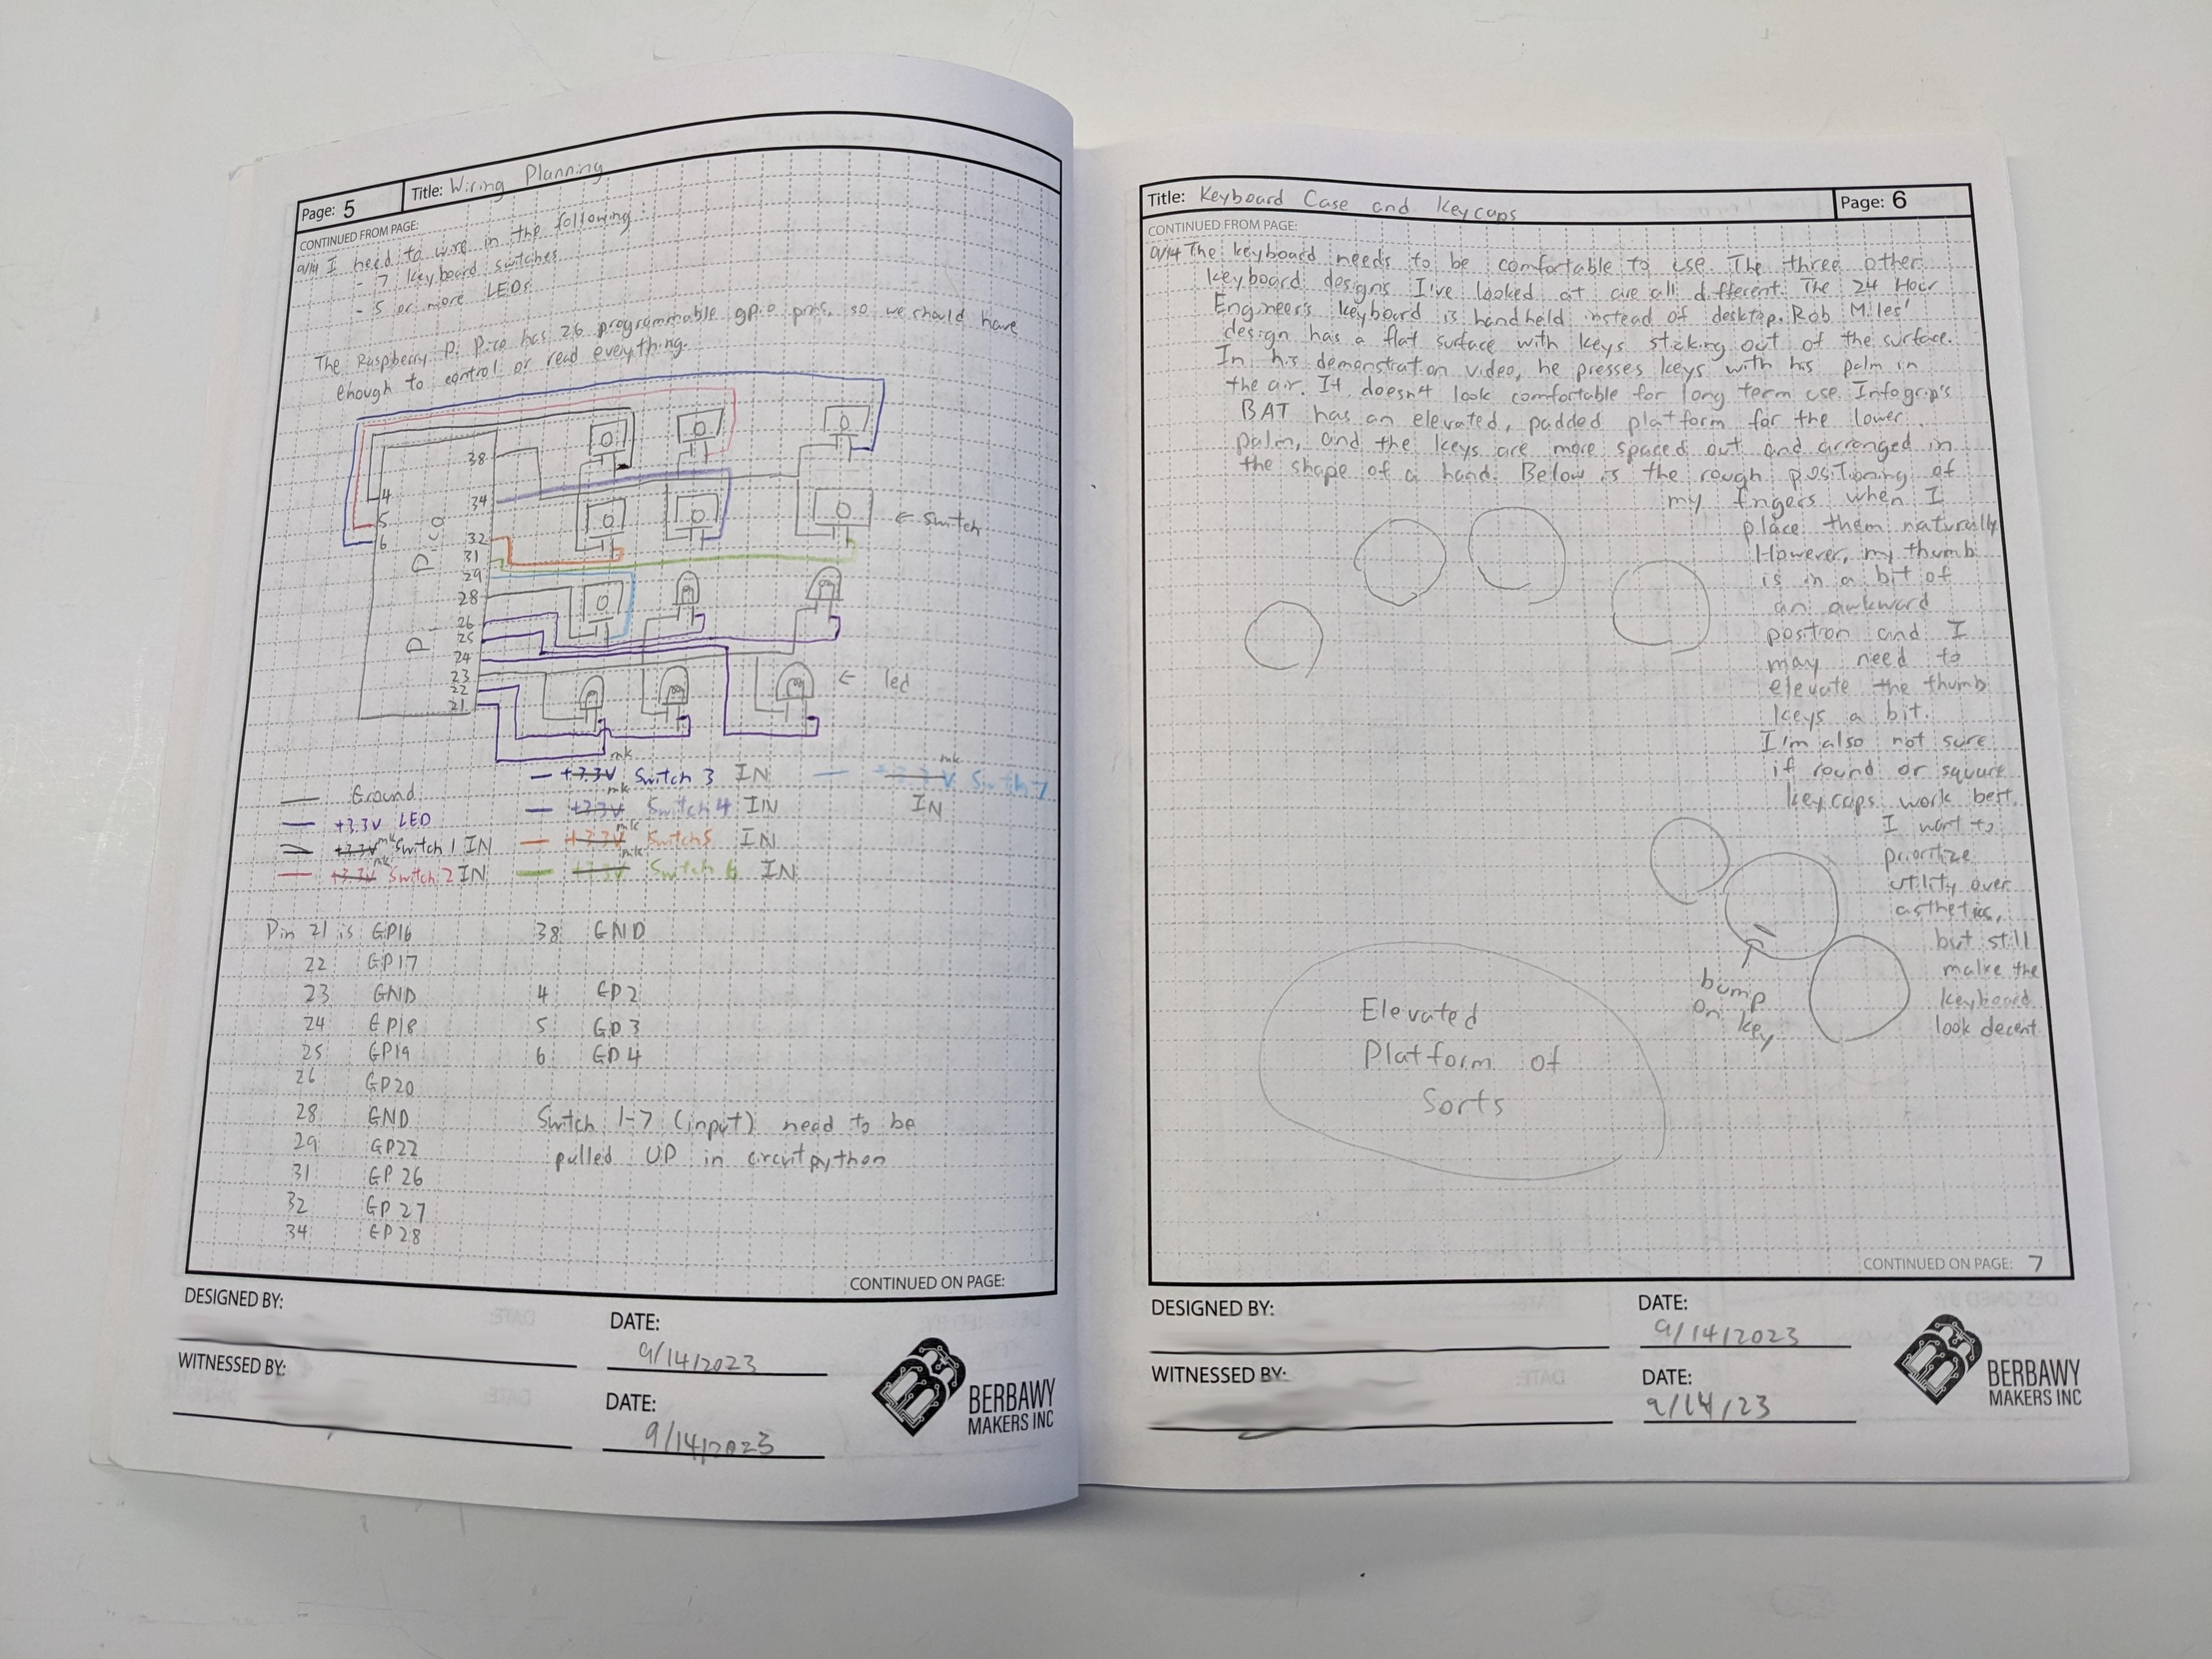 Page: 5
Title: Wiring Planning
CONTINUED FROM PAGE:
9/14 I need to wire in the following:
- 7 keyboard switches
- 5 or more LEDs
The Raspberry Pi Pico has 26 programmable gpio pins, so we should have
enough to control or read everything.
38
4
34
5
6
32
31
29
28
26
25
24
23
22
21
Pi Pico
← switch
← led
Ground
+3.3V LED
+3.3V mk Switch 1 IN
+3.3V mk Switch 2 IN
+3.3V mk Switch 3 IN
+3.3V mk Switch 4 IN
+3.3V mk Switch 5 IN
+3.3V mk Switch 6 IN
+3.3V mk Switch 7
IN
Pin 21 is GP16
22 GP17
23 GND
24 GP18
25 GP19
26 GP20
28 GND
29 GP22
31 GP 26
32 GP 27
34 GP 28
38 GND
4 GP2
5 GP3
6 GP4
Switch 1-7 (input) need to be
pulled UP in circuitpython
CONTINUED ON PAGE:
DESIGNED BY:
DATE:
9/14/2023
WITNESSED BY:
DATE:
9/14/2023
BERBAWY
MAKERS INC
Title: Keyboard Case and Keycaps
Page: 6
CONTINUED FROM PAGE:
9/14 The keyboard needs to be comfortable to use. The three other
keyboard designs I've looked at are all different. The 24 Hour
Engineer's keyboard is handheld instead of desktop. Rob Miles'
design has a flat surface with keys sticking out of the surface.
In his demonstration video, he presses keys with his palm in
the air. It doesn't look comfortable for long term use. Infogrip's
BAT has an elevated, padded platform for the lower
palm, and the keys are more spaced out and arranged in
the shape of a hand. Below is the rough positioning of
my fingers when I
place them naturally
However, my thumb
is in a bit of
an awkward
position and I
may need to
elevate the thumb
keys a bit.
I'm also not sure
if round or square
keycaps work best.
I want to
prioritize
utility over
asthetics,
but still
make the
keyboard
look decent
bump
on key
Elevated
Platform of
Sorts
CONTINUED ON PAGE: 7
DESIGNED BY:
DATE:
9/14/2023
WITNESSED BY:
DATE:
9/14/23
BERBAWY
MAKERS INC